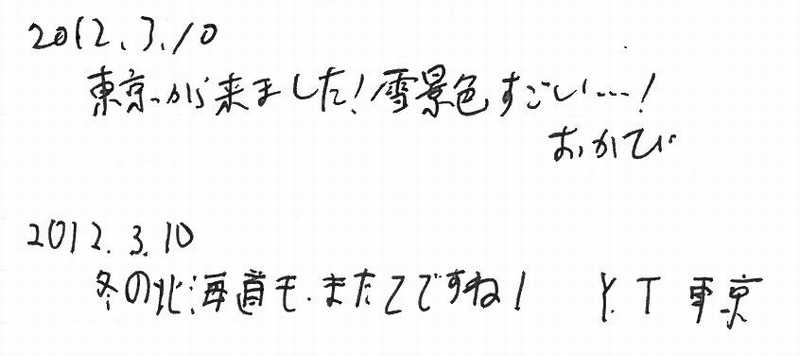 2012.3.10
東京から来ました!雪景色すごい…!
おかてぃ
2012.3.10
冬の北海道も、またいいですね! Y.T 東京